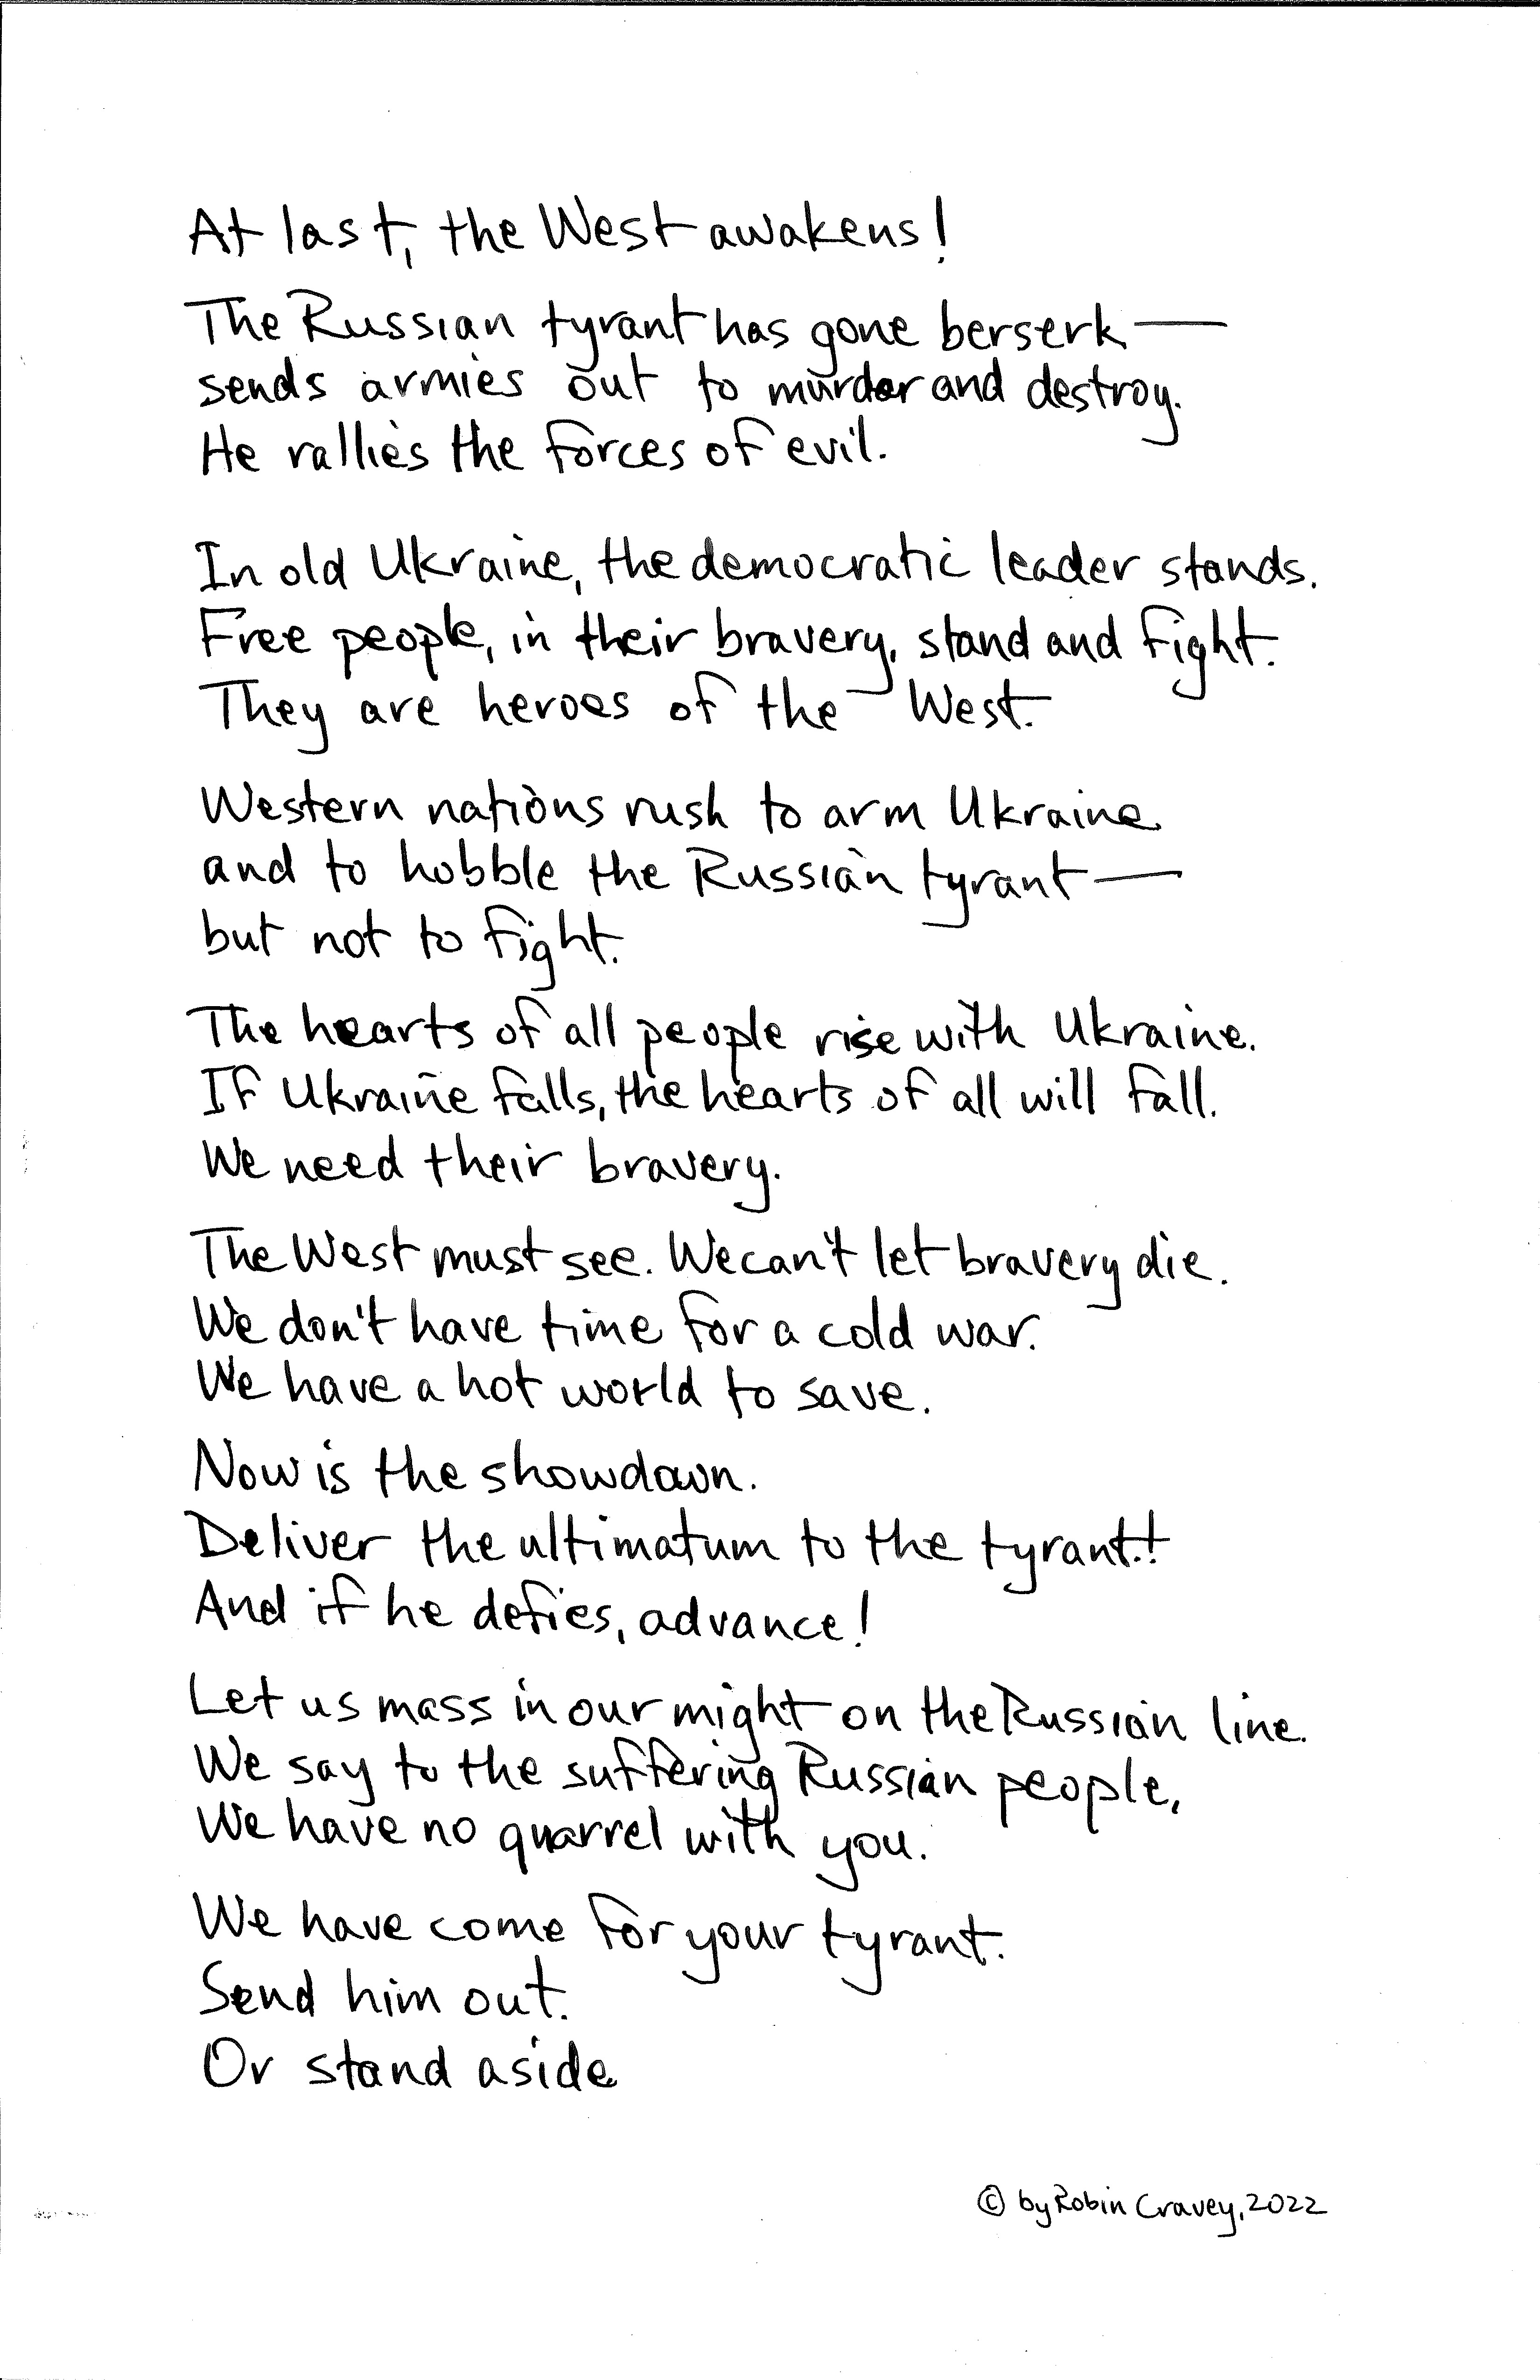 At last, the West awakens!
The Russian tyrant has gone berserk—
sends armies out to murder and destroy.
He rallies the forces of evil.
In old Ukraine, the democratic leader stands.
Free people, in their bravery, stand and fight.
They are heroes of the West.
Western nations rush to arm Ukraine
and to hobble the Russian tyrant—
but not to fight.
The hearts of all people rise with Ukraine.
If Ukraine falls, the hearts of all will fall.
We need their bravery.
The West must see. We can't let bravery die.
We don't have time for a cold war.
We have a hot world to save.
Now is the showdown.
Deliver the ultimatum to the tyrant!
And if he defies, advance!
Let us mass in our might on the Russian line.
We say to the suffering Russian people,
We have no quarrel with you.
We have come for your tyrant.
Send him out.
Or stand aside
© by Robin Cravey, 2022